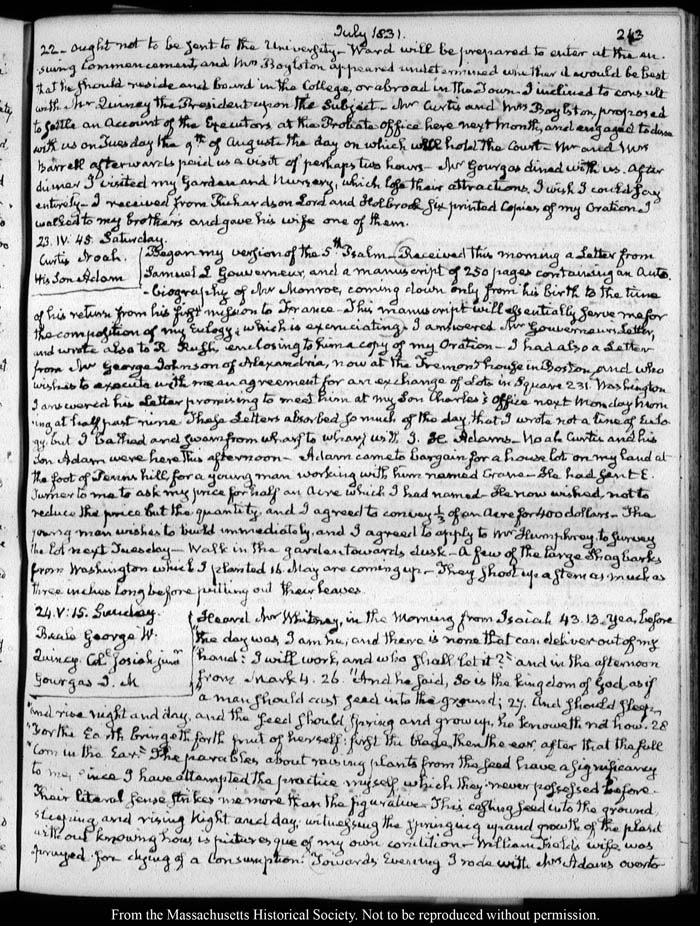 July 1831.
243
22 - ought not to be sent to the University - Ward will be prepared to enter at the en-
suing Commencement, and Mrs Boylston appeared undetermined whether it would be best
that he should reside and board in the College, or abroad in the Town. I inclined to consult
with Mr Quincy the President upon the subject - Mr Curtis and Mrs Boylston, proposed
to settle an Account of the Executors at the Probate office here next Month, and engaged to dine
with us on Tuesday the 9th of August the day on which will hold the Court - Mr and Mrs
Barrell afterwards paid us a visit of perhaps two hours - Mr Gourgas dined with us. After
dinner I visited my Garden and Nursery, which lose their attractions. I wish I could say
entirely - I received from Richardson Lord and Holbrook six printed Copies of my Oration. I
walked to my brother's and gave his wife one of them.
23. IV: 45. Saturday.
Curtis Noah.
His Son Adam
Began my version of the 5th Psalm - Received this morning a Letter from
Samuel L Gouverneur, and a manuscript of 250 pages containing an Auto-
-biography of Mr Monroe, coming down only from his birth to the time
of his return from his first mission to France - This manuscript will essentially serve me for
the composition of my Eulogy; which is excruciating. I answered Mr Gouverneur's Letter,
and wrote also to R. Rush, enclosing to him a copy of my Oration - I had also a Letter
from Mr George Johnson of Alexandria, now at the Tremont house in Boston, and who
wishes to execute with me an agreement for an exchange of Lots in Square 231. Washington
I answered his Letter promising to meet him at my Son Charles's office next Monday Morn-
ing at half past nine. These Letters absorbed so much of the day that I wrote not a line of Eulo-
gy, but I bathed and swam from wharf to wharf with I. H. Adams - Noah Curtis and his
Son Adam were here this afternoon - Adam came to bargain for a house lot on my land at
the foot of Penns hill, for a young man working with him named Crane - He had sent E.
Turner to me to ask my price for half an Acre which I had named - He now wished, not to
reduce the price but the quantity, and I agreed to convey 1/3 of an Acre for 400 dollars - The
young man wishes to build immediately, and I agreed to apply to Mr Humphrey, to survey
the lot next Tuesday - Walk in the garden towards dusk - A few of the large Shagbarks
from Washington which I planted 16. May are coming up. - They shoot up a stem as much as
three inches long before putting out their leaves.
24. V: 15. Sunday.
Beale George W.
Quincy Col. Josiah junr
Gourgas J. M
Heard Mr Whitney, in the Morning from Isaiah 43. 13. Yea, before
"the day was, I am he, and there is none that can deliver out of my
"hand: I will work, and who shall let it?" and in the afternoon
from Mark 4. 26. "And he said, So is the kingdom of God, as if
"a man should cast seed into the ground; 27. And should sleep,
"and rise night and day, and the seed should spring and grow up, he knoweth not how. 28
"For the Earth bringeth forth fruit of herself: first the blade, then the ear, after that the full
"Corn in the Ear." The parables about raising plants from the seed have a significancy
to me, since I have attempted the practice myself which they never possessed before -
Their literal sense strikes me more than the figurative - This casting seed into the ground,
sleeping and rising Night and day, witnessing the springing up and growth of the plant
without knowing how, is picturesque of my own condition - William Field's wife was
prayed for dying of a consumption. Towards Evening I rode with Mrs Adams over to
From the Massachusetts Historical Society. Not to be reproduced without permission.